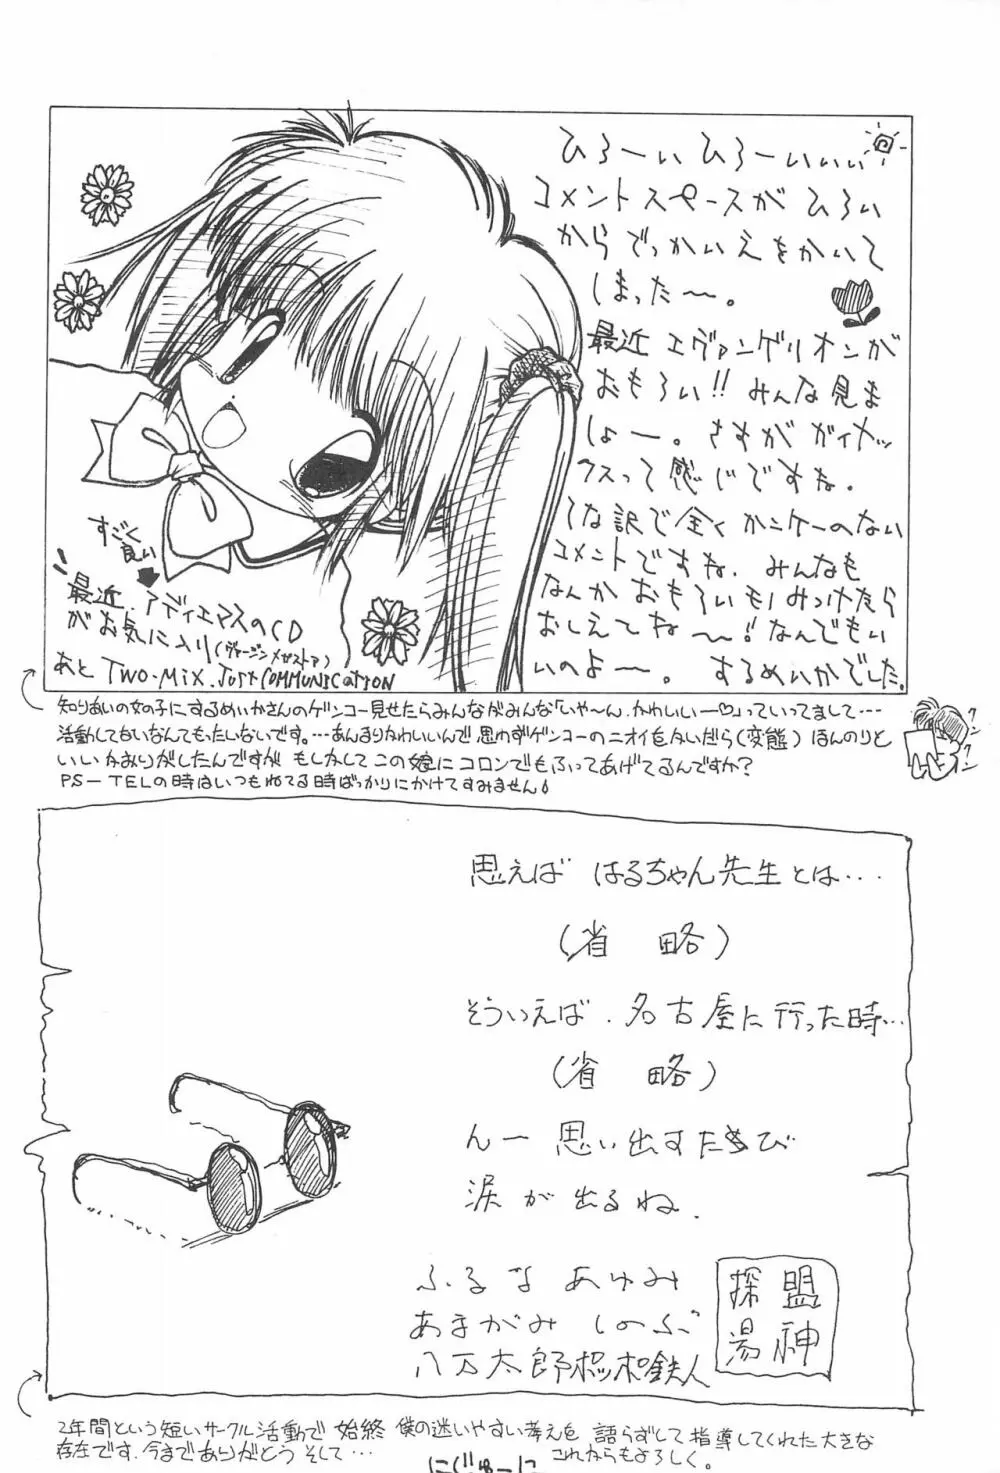 ひろーい ひろーいいい
コメントスペースが ひろい
からでっかいえをかいて
しまった〜。
最近 エヴァンゲリオンが
おもろい!! みんな見ま
しょー。さすが ガイナッ
クスって感じですね。
しな訳で全くカンケーのない
コメントですね. みんなも
なんか おもろいもんみつけたら
おしえてね〜!なんでもい
いのよー。 するめいかでした.
すごく
良い
最近. アディエマスのCD
がお気に入り(ヴァージンメガストア)
あと TWO-MIX. JUST COMMUNICATION
知りあいの女の子にするめいかさんのゲンコー見せたらみんながみんな「いや〜ん.かわいいー♡」っていってまして…
活動してないなんてもったいないです。…あんまりかわいいんで 思わずゲンコーのニオイをかいだら(変態) ほんのりと
いいかおりがしたんですが もしかして この娘にコロンでもふってあげてるんですか?
PS-TELの時はいつもねてる時ばっかりにかけてすみません
思えば はるちゃん先生とは…
(省 略)
そういえば. 名古屋に行った時…
(省 略)
んー 思い出すたんび
涙が出るね.
ふるな あゆみ
あまがみ しのぶ
八万太郎ポッポ鉄人
探盟
湯神
2年間という短いサークル活動で 始終 僕の迷いやすい考えを 語らずして指導してくれた大きな
存在です.今までありがとう そして… これからもよろしく。
にじゅーに